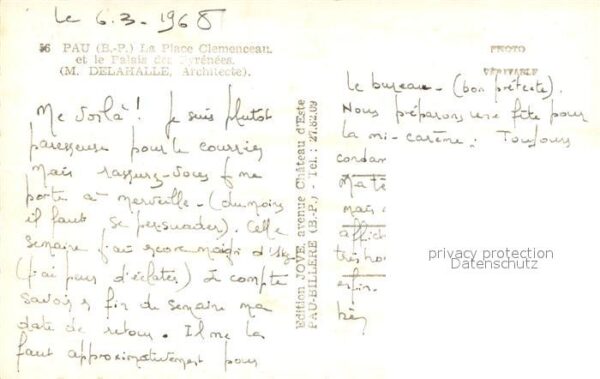 le 6.3-1968
56 PAU (B.-P.) La Place Clemenceau
et le Palais des Pyrénées.
(M. DELAHALLE, Architecte).
Me voilà! Je suis plutôt
paresseuse pour le courrier
mais rassurez-vous j me
porte à merveille - (du moins
il faut se persuader). Cette
semaine j'ai encore maigri d'1kg
(j'ai peur d'éclater) je compte
savoir fin de semaine ma
date de retour. Il me la
faut approximativement pour
Edition JOVE, avenue Château d'Este
PAU-BILLERE (B.-P.) - Tel.: 27.62.09
PHOTO
VÉRITABLE
le bureau - (bon prétexte).
Nous préparons une fête pour
la mi-carême. Toujours
mais
affich
enfin.
privacy protection
Datenschutz